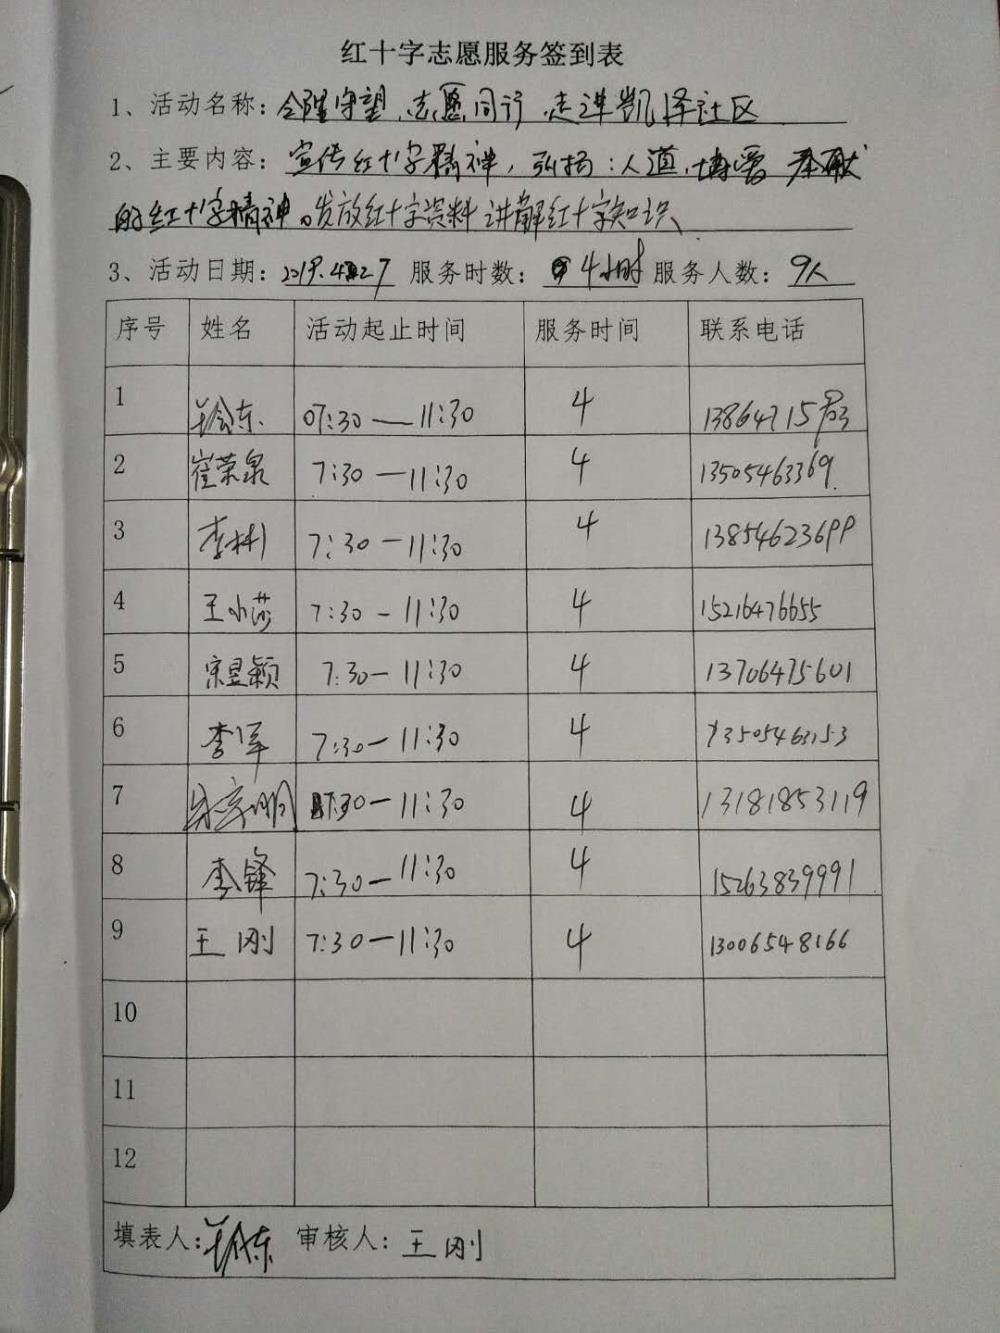 红十字志愿服务签到表
1、活动名称: 守望,志愿同行 走进凯泽社区
2、主要内容: 宣传红十字精神,弘扬:人道,博爱 奉献
的红十字精神。发放红十字资料 讲解红十字知识
3、活动日期: 2019.4.27 服务时数: 4小时 服务人数: 9人
序号 姓名 活动起止时间 服务时间 联系电话
1 东 07:30—11:30 4
2 崔荣泉 7:30—11:30 4 13505463369
3 李彬 7:30—11:30 4 13854623699
4 王小莎 7:30-11:30 4 15216476655
5 宋昱颖 7:30—11:30 4 13706475601
6 李军 7:30—11:30 4 13505463153
7 7:30—11:30 4 13181853119
8 李锋 7:30—11:30 4 15263839991
9 王刚 7:30—11:30 4 13006548166
10
11
12
填表人: 东 审核人: 王刚